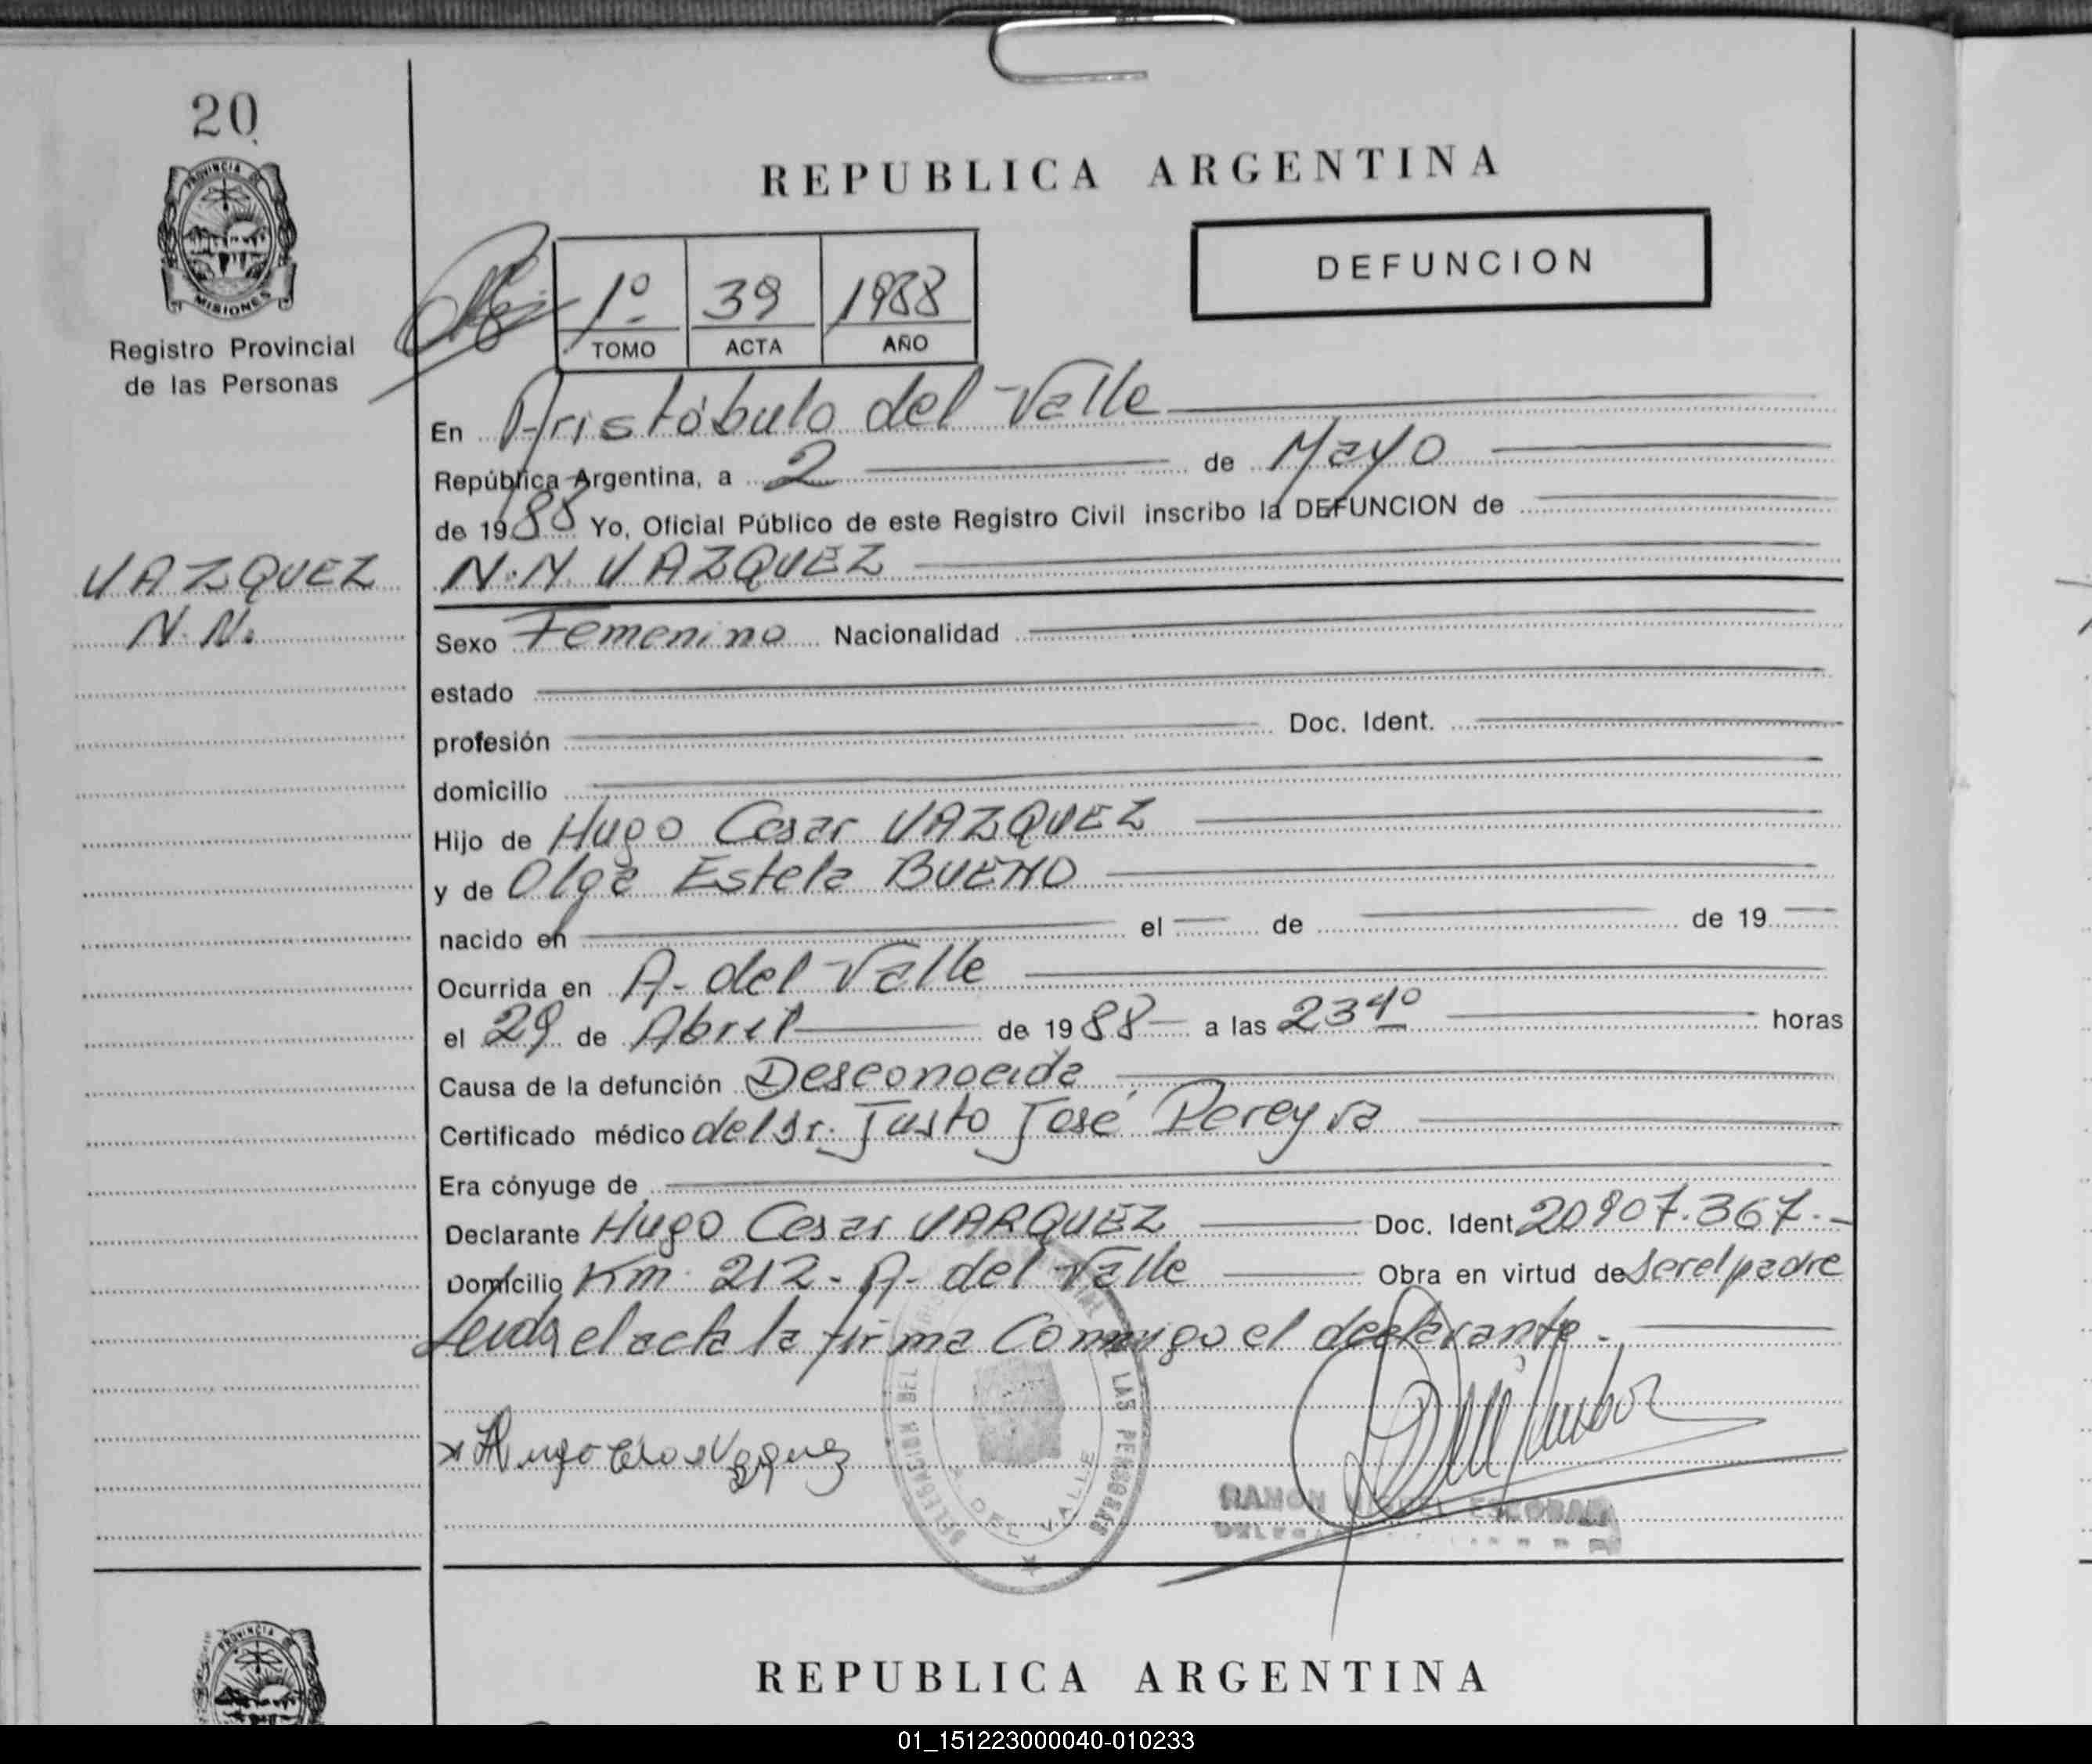 20
PROVINCIA DE
MISIONES
Registro Provincial
de las Personas
REPUBLICA ARGENTINA
DEFUNCION
1º 39 1988
TOMO ACTA AÑO
En Aristóbulo del Valle
República Argentina, a 2 de Mayo
de 1988 Yo, Oficial Público de este Registro Civil inscribo la DEFUNCION de
VAZQUEZ N.N. VAZQUEZ
N.N.
Sexo Femenino Nacionalidad
estado
profesión Doc. Ident.
domicilio
Hijo de Hugo Cesar VAZQUEZ
y de Olga Estela BUENO
nacido en el de de 19
Ocurrida en A. del Valle
el 29 de Abril de 1988 a las 23 40 horas
Causa de la defunción Desconocida
Certificado médico del Dr. Justo José Pereyra
Era cónyuge de
Declarante Hugo Cesar VARQUEZ Doc. Ident 20907.367.-
Domicilio Km 212 - A. del Valle Obra en virtud de ser el padre
Leida el acta la firma conmigo el declarante.-
x Hugo
DELEGACION DEL LAS PERSONAS
A. DEL VALLE
RAMON MIGUEL ESCOBAR
PROVINCIA
REPUBLICA ARGENTINA
01_151223000040-010233